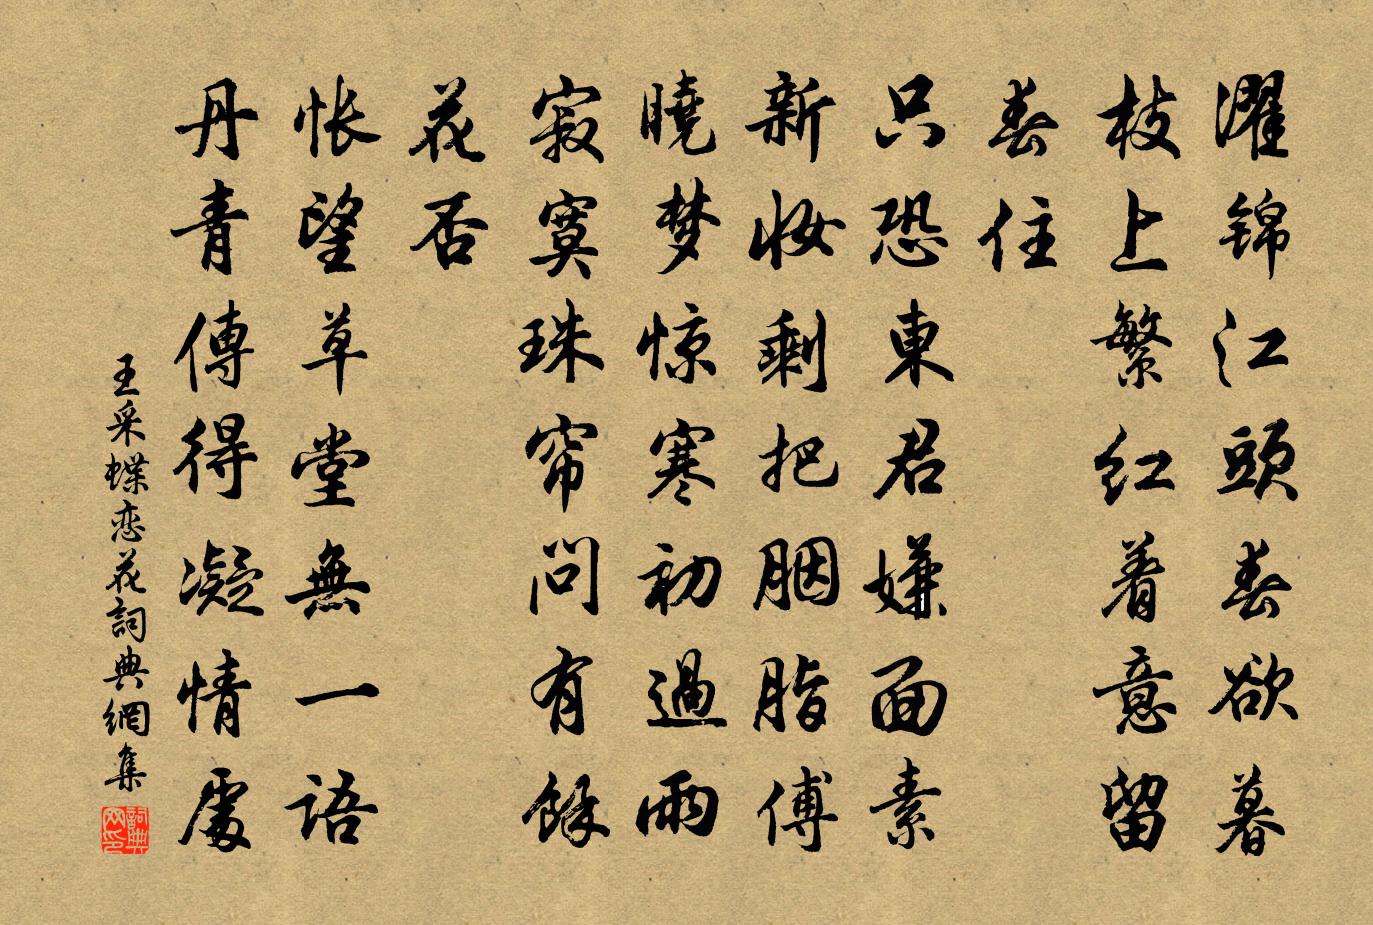 濯锦江頭春欲暮
枝上繁红着意留
春住
只恐東君嫌面素
新妆剩把胭脂傅
曉梦惊寒初過雨
寂寞珠帘问有餘
花否
怅望草堂無一语
丹青傳得凝情處
王采蝶恋花詞典網集
詞典網印